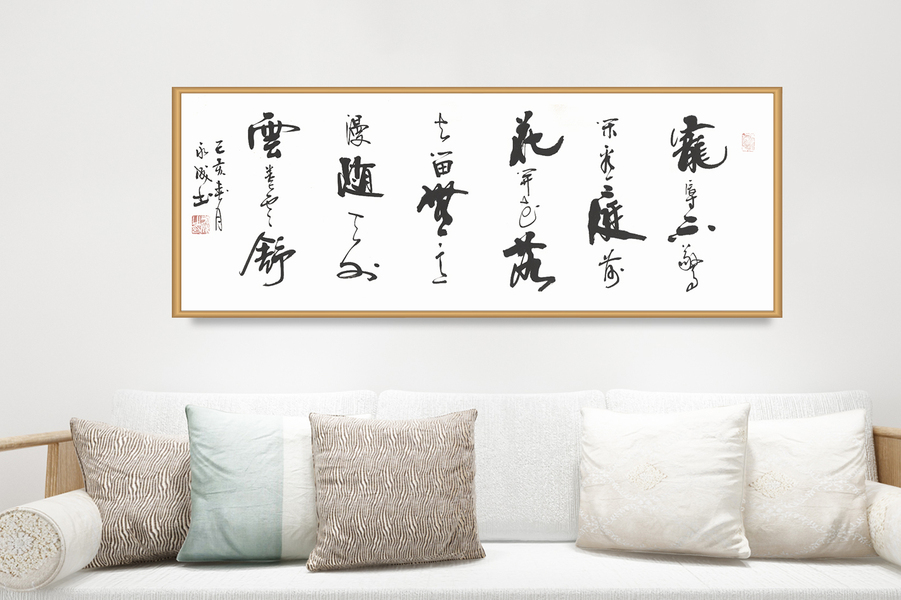 寵辱不驚
閑看庭前
花開花落
去留無意
漫随天外
雲卷雲舒
己亥春月
永成书